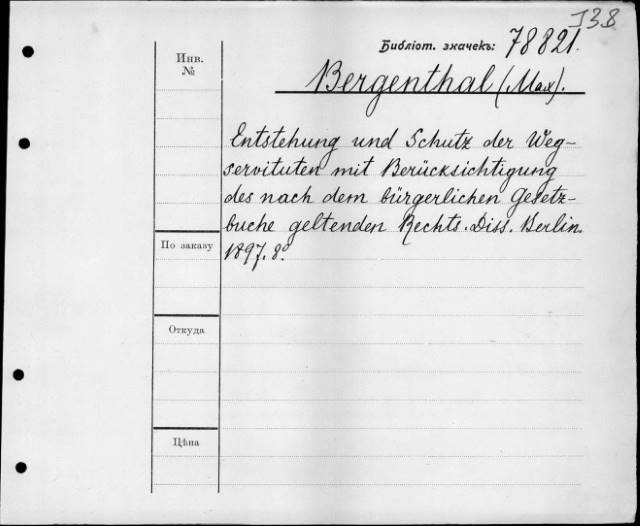 I38
Библіот. значекъ: 78821.
Инв.
№
Bergenthal (Max).
Entstehung und Schutz der Weg-
servituten mit Berücksichtigung
des nach dem bürgerlichen Gesetz-
buche geltenden Rechts. Diss. Berlin.
1897. 8°
По заказу
Откуда
Цѣна